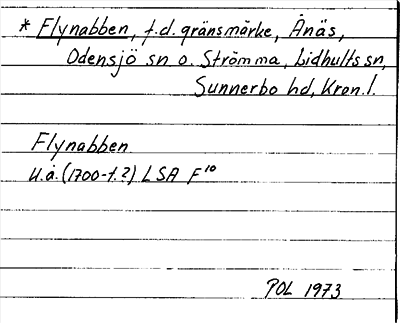 * Flynabben, f.d. gränsmärke, Ånäs,
Odensjö sn o. Strömma, Lidhults sn,
Sunnerbo hd, Kron. l.
Flynabben
u.å. (1700-t.?) LSA F10
POL 1973